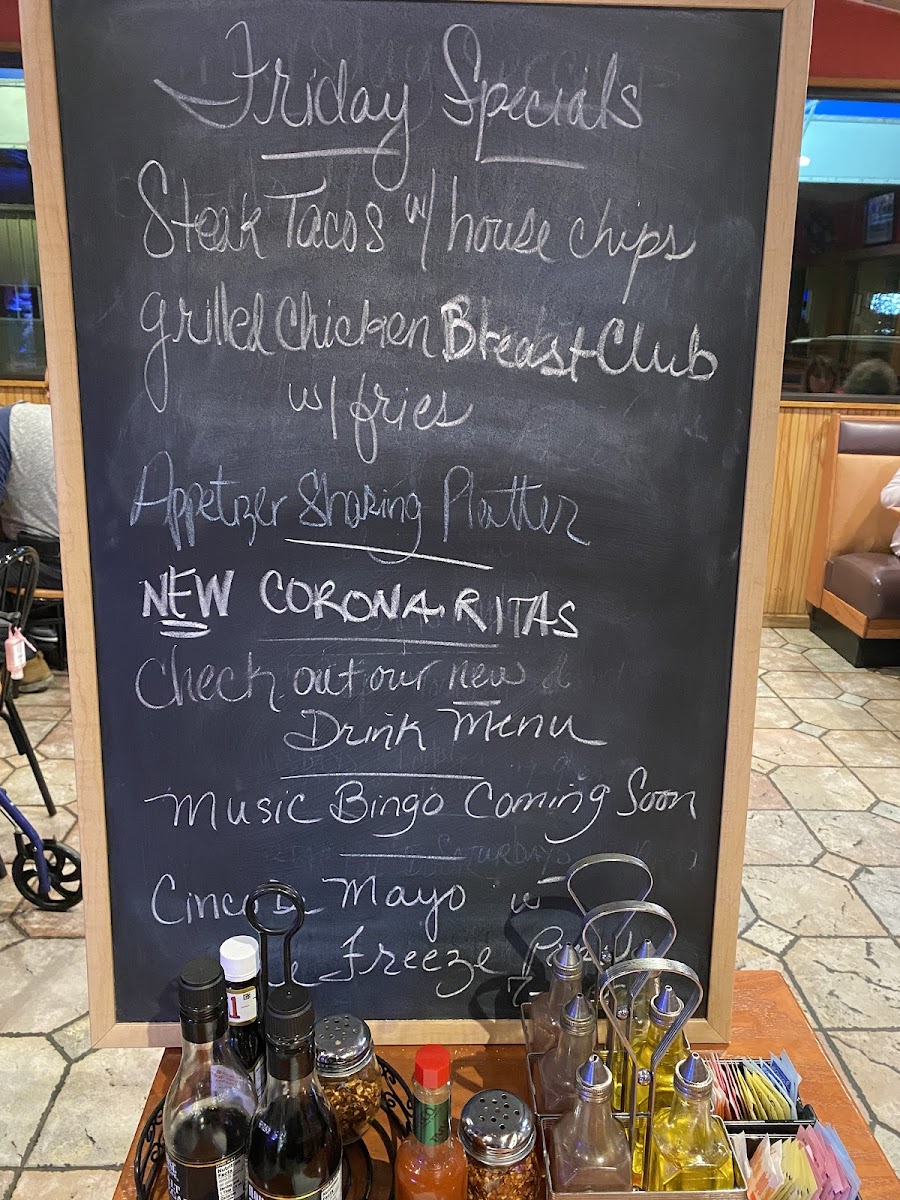 Friday Specials
Steak Tacos w/ house chips
grilled chicken Breast Club
w/ fries
Appetizer Sharing Platter
NEW CORONA RITAS
Check out our new
Drink Menu
Music Bingo Coming Soon
Mayo
Freeze